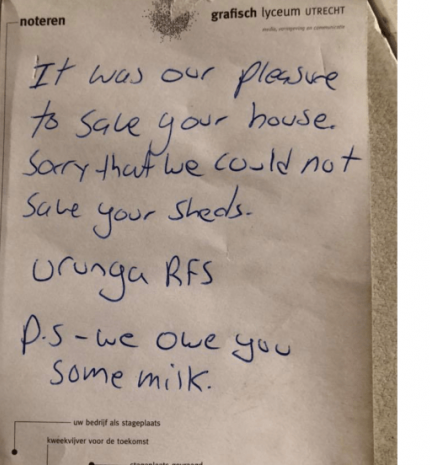 noteren
grafisch lyceum UTRECHT
It was our pleasure
to save your house.
Sorry that we could not
save your sheds.
Urunga RFS
P.S - we owe you
some milk.
uw bedrijf als stageplaats
kweekvijver voor de toekomst